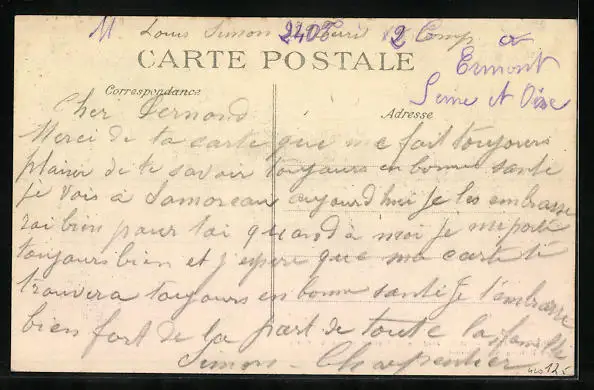 M Louis Simon 240e Terri 12 Comp a
CARTE POSTALE
Ermont
Correspondance
Seine et Oise
Adresse
Cher Fernand
Merci de ta carte que me fait toujours
plaisir de te savoir toujours en bonne santé
je vais à Samoreau aujourd'hui je les embrasse
rai bien pour toi quand à moi je me porte
toujours bien et j'espère que ma carte te
trouvera toujours en bonne santé Je t'embrasse
bien fort de la part de toute la famille
Simon Charpentier